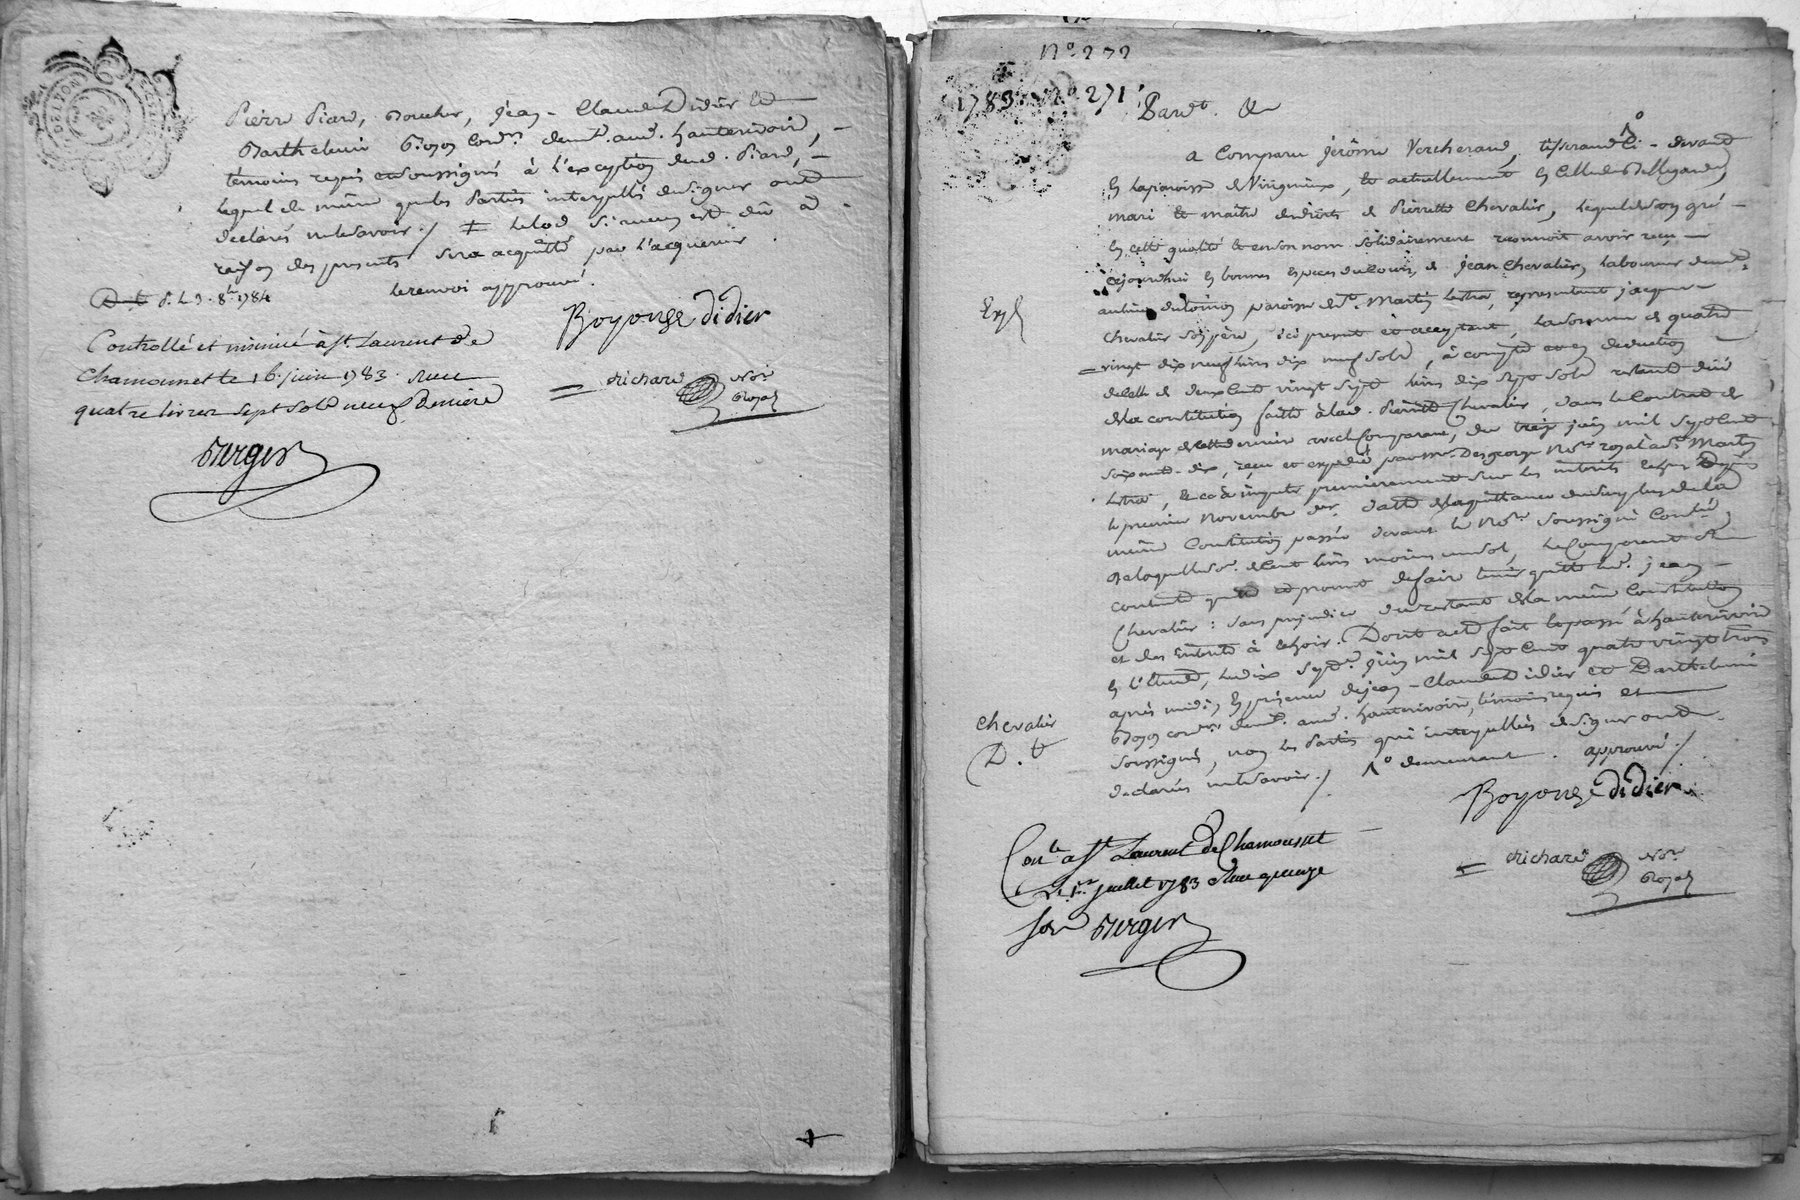 DE LYON
Pierre Piard, Boucher, Jean-Claude Didier et
Barthelemi Boyon cord.rs demt. aud. hauterivoire,
témoins requis et soussignés à l'exception dud. Piard,
lequel de même que les Parties interpellés de signer ont
declarés ne le savoir ./ ≠ Le lod si aucun est dû à
raison des presentes sera acquitté par l'acquereur
le renvoi approuvé.
8.bre 1784
Boyon Didier
Controllé et insinué à st. Laurent de
Chamousset le 16. juin 1783. Recu
quatre livres sept sols neuf deniers
Richard Not.re
Royal
Verger
N.o 272
1783. N.o 271
Pardt. &a
A Comparu jérôme Vercherand, tisserand 1.o devant
en la paroisse de Virigneux, et actuellement en celle de Bellegarde,
mari et maitre des droits de Pierrette Chevalier, lequel de son gré
en cette qualité et en son nom solidairement reconnoit avoir reçu
cejourdhui en bonnes especes de cours, de jean Chevalier, laboureur demt.
au lieu de paroisse de St. Martin Lestra, representant jacques
Expé
Chevalier son père, ici present et acceptant, la somme de quatre
vingt dix neuf livres dix neuf sols, à compte et en deduction
de celle de deux cent vingt sept livres dix sept sols restant düe
de la constitution faitte à lad. Pierrette Chevalier, dans le Contrat de
mariage de cette derniere avec le Comparant, du treize juin mil sept cent
soixante-dix, reçu et expedié par me. Desgeorge No.re royal à St. Martin
Lestra, et ce à imputer premierement sur les interets echus depuis
le premier Novembre der. datte de la quittance
même Constitution passée devant le No.re soussigné
De laquelle so. de cent livres moins un sol, le Comparant
content quitte et promet de faire tenir quitte led. jean
Chevalier: sans prejudice du restant de la même Constitution
et des interets à echoir. Dont acte fait et passé à hauterivoire
en l'Etude, le dix sept. juin mil sept cent quatre vingt trois
après midi, en presence de jean-Claude Didier et Barthelemi
Boyon cord.rs demt. aud. hauterivoire, témoins requis et
soussignés, non les Parties qui interpellées de signer ont
declarés ne le savoir ./ 1.o demeurant. approuvé ./
Chevalier
D. t
Boyon Didier
Con.lé a st Laurent de Chamousset
le 1.er juillet 1783 Recu quinze
sols Verger
Richard Not.re
Royal